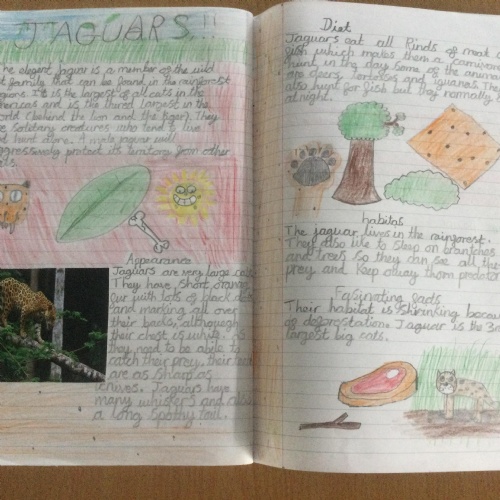 JAGUARS!!
The elegant Jaguar is a member of the wild
cat family that can be found in the rainforest
Jaguars. It is the largest of all cats in the
Americas and is the thired largest in the
world (behind the lion and the tiger). They
are solitary creatures who tend to live
and hunt alone. A male jaguar will
aggressively protect its teratory from other
Appearance
Jaguars are very large cats
They have short orange
fur with lots of black dots
and marking all over
their backs, although
their chest is white. As
they need to be able to
catch their prey, their teeth
are as sharp as
knives. Jaguars have
many whiskers and also
a long spotty tail.
Diet
Jaguars eat all kinds of meat
fish which makes them a carnivore
hunt in the day some of the animals
are deers, tortoises and iguanes. They
also hunt for fish but they normally
at night.
habitas
The jaguar lives in the rainforest.
They also like to sleep on branches
and trees so they can see all the
prey and keep away from predators
Fascinating facts
Their habitat is shrinking because
of deforestation. Jaguar is the 3rd
largest big cats.